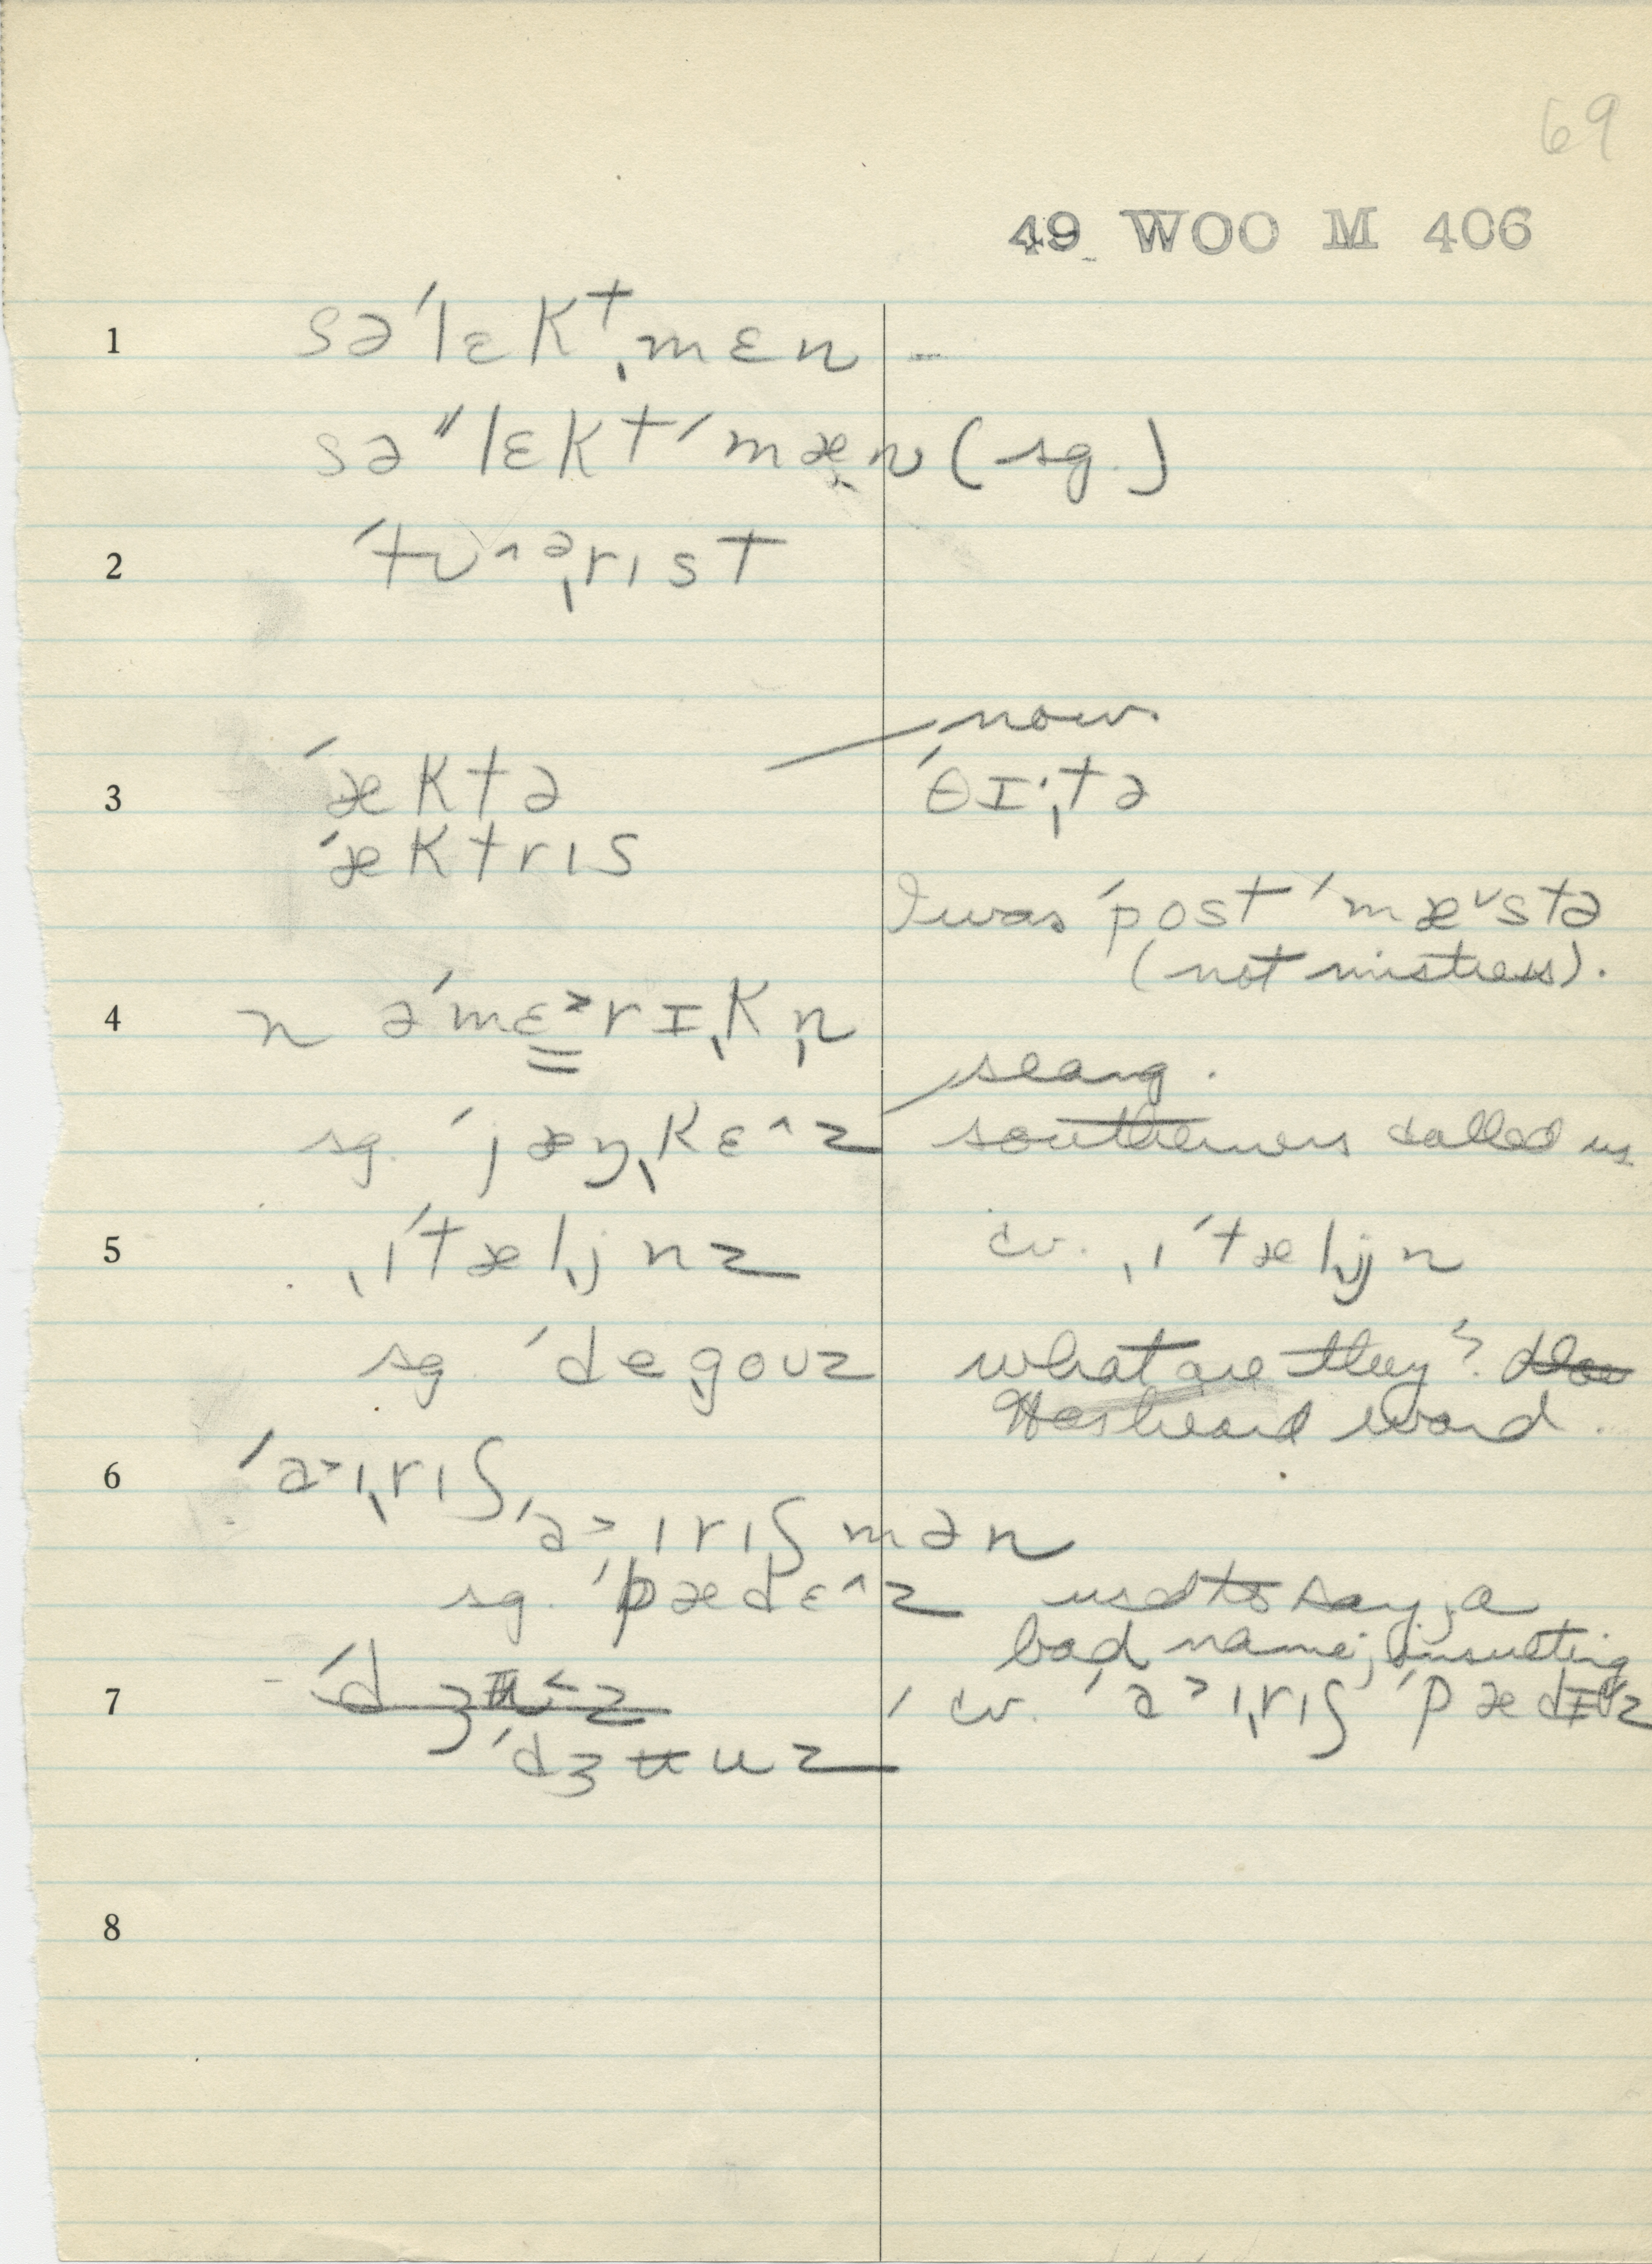 69
49 WOO M 406
1 sə ˈlɛkᵗˌmɛn –
sə ˈˈlɛkt ˈmæn (sg.)
2 ˈtʊ^ᵊˌrɪst
now
3 ˈæktə ˈθɪ·ˌtə
ˈæktrɪs
I was ˈpost ˈmæ˅stə
(not mistress).
4 n ə ˈmɛ˃rɪˌkn̩
slang.
sg. ˈjæŋˌkɛ^z southerners called us
5 ˌɪ ˈtælˌjnz cv. ˌɪ ˈtælˌjn
sg. ˈdeˌgoʊz what are they?
Has heard word.
6 ˈa˃ɪˌrɪʃ
ˈa˃ɪrɪʃmən
sg. ˈpædɛ^z used to say, a
bad name; insulting
7 cv. ˈa˃ɪˌrɪʃ ˈpædɪ˅z
ˈdʒuz
8